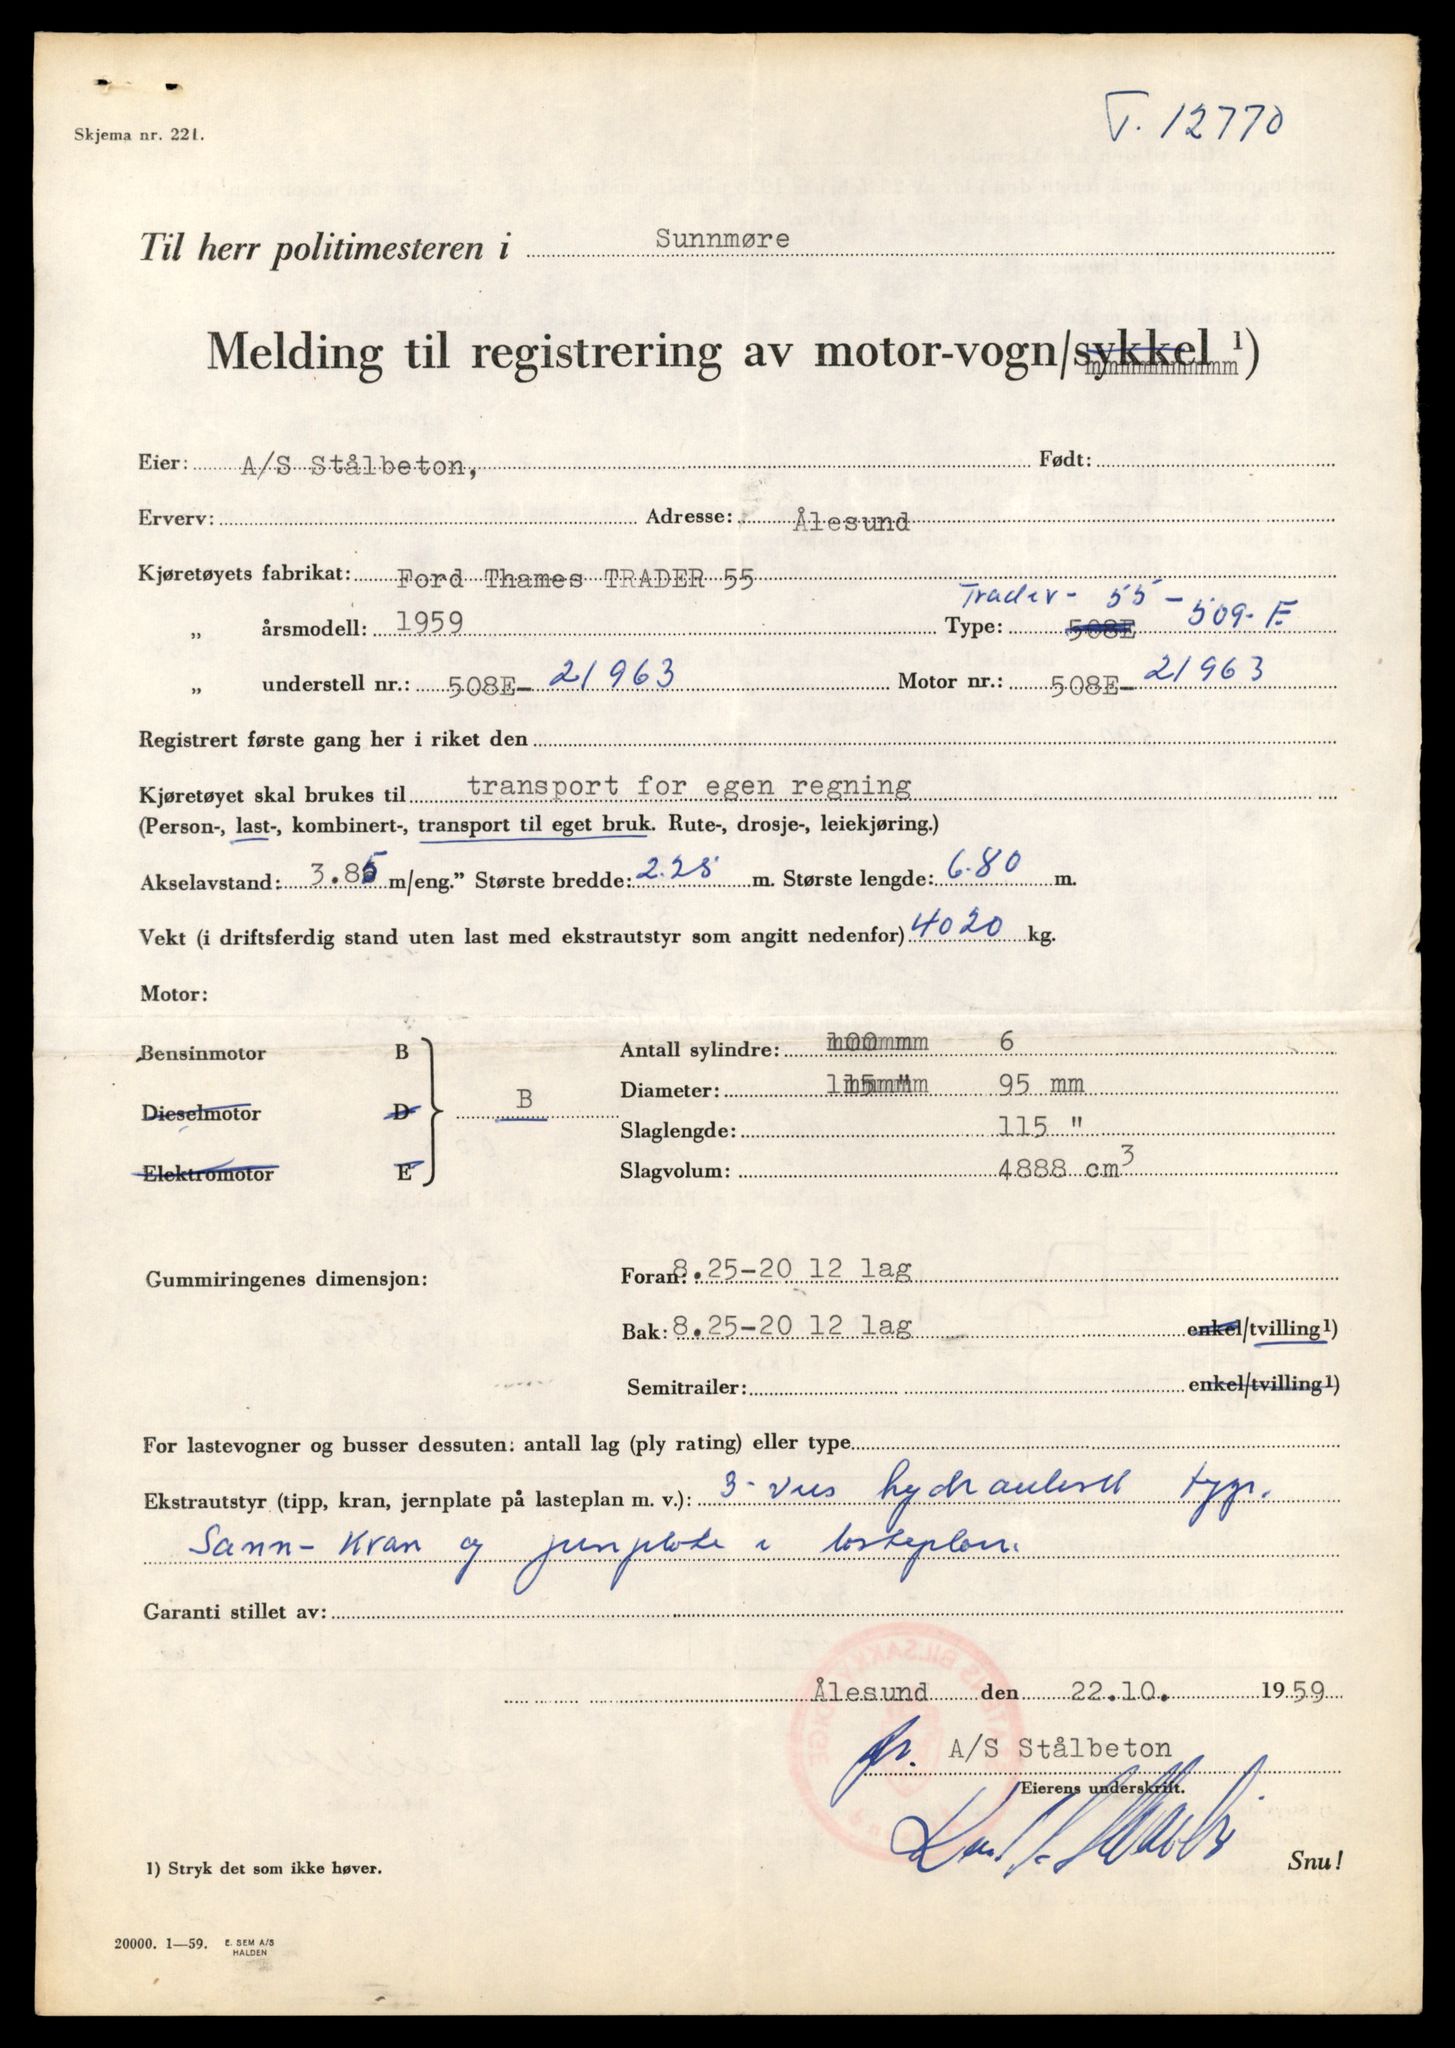 T. 12770
Skjema nr. 221.
Til herr politimesteren i Sunnmøre
Melding til registrering av motor-vogn/sykkel 1)
Eier: A/S Stålbeton, Født:
Erverv: Adresse: Ålesund
Kjøretøyets fabrikat: Ford Thames TRADER 55
Trader - 55 - 509-E.
„ årsmodell: 1959 Type: 508E
„ understell nr.: 508E- 21963 Motor nr.: 508E- 21963
Registrert første gang her i riket den
Kjøretøyet skal brukes til transport for egen regning
(Person-, last-, kombinert-, transport til eget bruk. Rute-, drosje-, leiekjøring.)
Akselavstand: 3.85 m/eng.” Største bredde: 2.25 m. Største lengde: 6.80 m.
Vekt (i driftsferdig stand uten last med ekstrautstyr som angitt nedenfor) 4020 kg.
Motor:
Bensinmotor B Antall sylindre: 100 mm 6
Dieselmotor D B Diameter: 115 " 95 mm
Slaglengde: 115 "
Elektromotor E Slagvolum: 4888 cm3
Gummiringenes dimensjon: Foran: 8.25-20 12 lag
Bak: 8.25-20 12 lag enkel/tvilling1)
Semitrailer: enkel/tvilling1)
For lastevogner og busser dessuten: antall lag (ply rating) eller type
Ekstrautstyr (tipp, kran, jernplate på lasteplan m. v.): 3-veis hydraulisk tipp.
Sann-Kran og jernplate i lasteplan.
Garanti stillet av:
Ålesund den 22.10. 1959
pr. A/S Stålbeton
Eierens underskrift.
1) Stryk det som ikke høver.
Snu!
20000. 1—59. E. SEM A/S
HALDEN